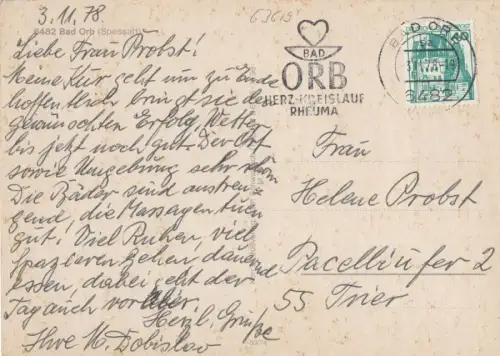 3.11.78.
6482 Bad Orb (Spessart)
Liebe Frau Probst!
Meine Kur geht nun zu Ende
hoffentlich bringt sie den
gewünschten Erfolg, Wetter
bis jetzt noch gut. Der Ort
sowie Umgebung sehr schön
Die Bäder sind anstren-
gend, die Massagen tuen
gut! Viel Ruhen, viel
spazieren gehen dauernd
essen, dabei geht der
Tag auch vorüber.
Herzl. Grüße
Ihre M. Dobislav
63619
BAD
ORB
HERZ-KREISLAUF
RHEUMA
BAD ORB
6482
Frau
Helene Probst
Pacelliufer 2
55 Trier